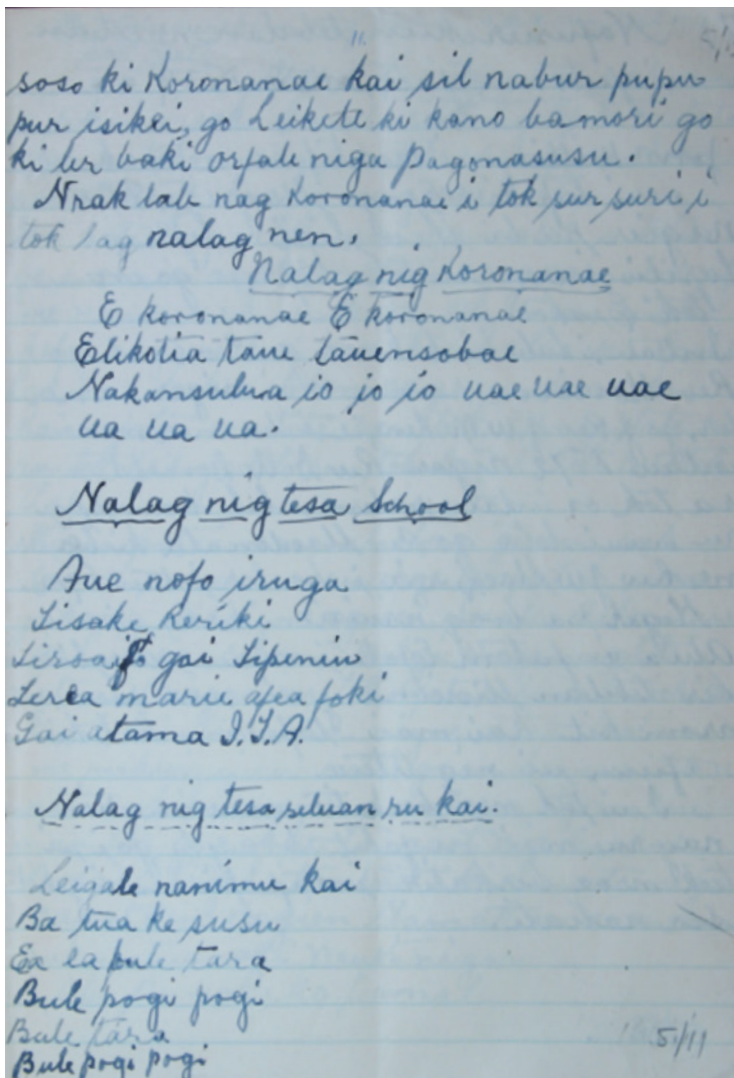 11.
soso ki Koronanae kai sil nabur pupu
pur isikei, go Leikele ki kano bamori go
ki ler baki orfale niga Pagonasusu.
Nrak lab nag Koronanae i tok sur suri i
tok lag nalag nen.
Nalag nig Koronanae
E koronanae E koronanae
Elikotia taue tauensobae
Nakansulua io io io uae uae uae
ua ua ua.
Nalag nig tesa School
Aue nofo iruga
Sisake keriki
gai Sipeniu
marie afea foki
Gai atama I.I.A.
Nalag nig tesa seluan ru kai.
Leigale nanimu kai
Ba tua ke susu
Ea la bule tara
Bule pogi pogi
Bule tara
Bule pogi pogi
5/11